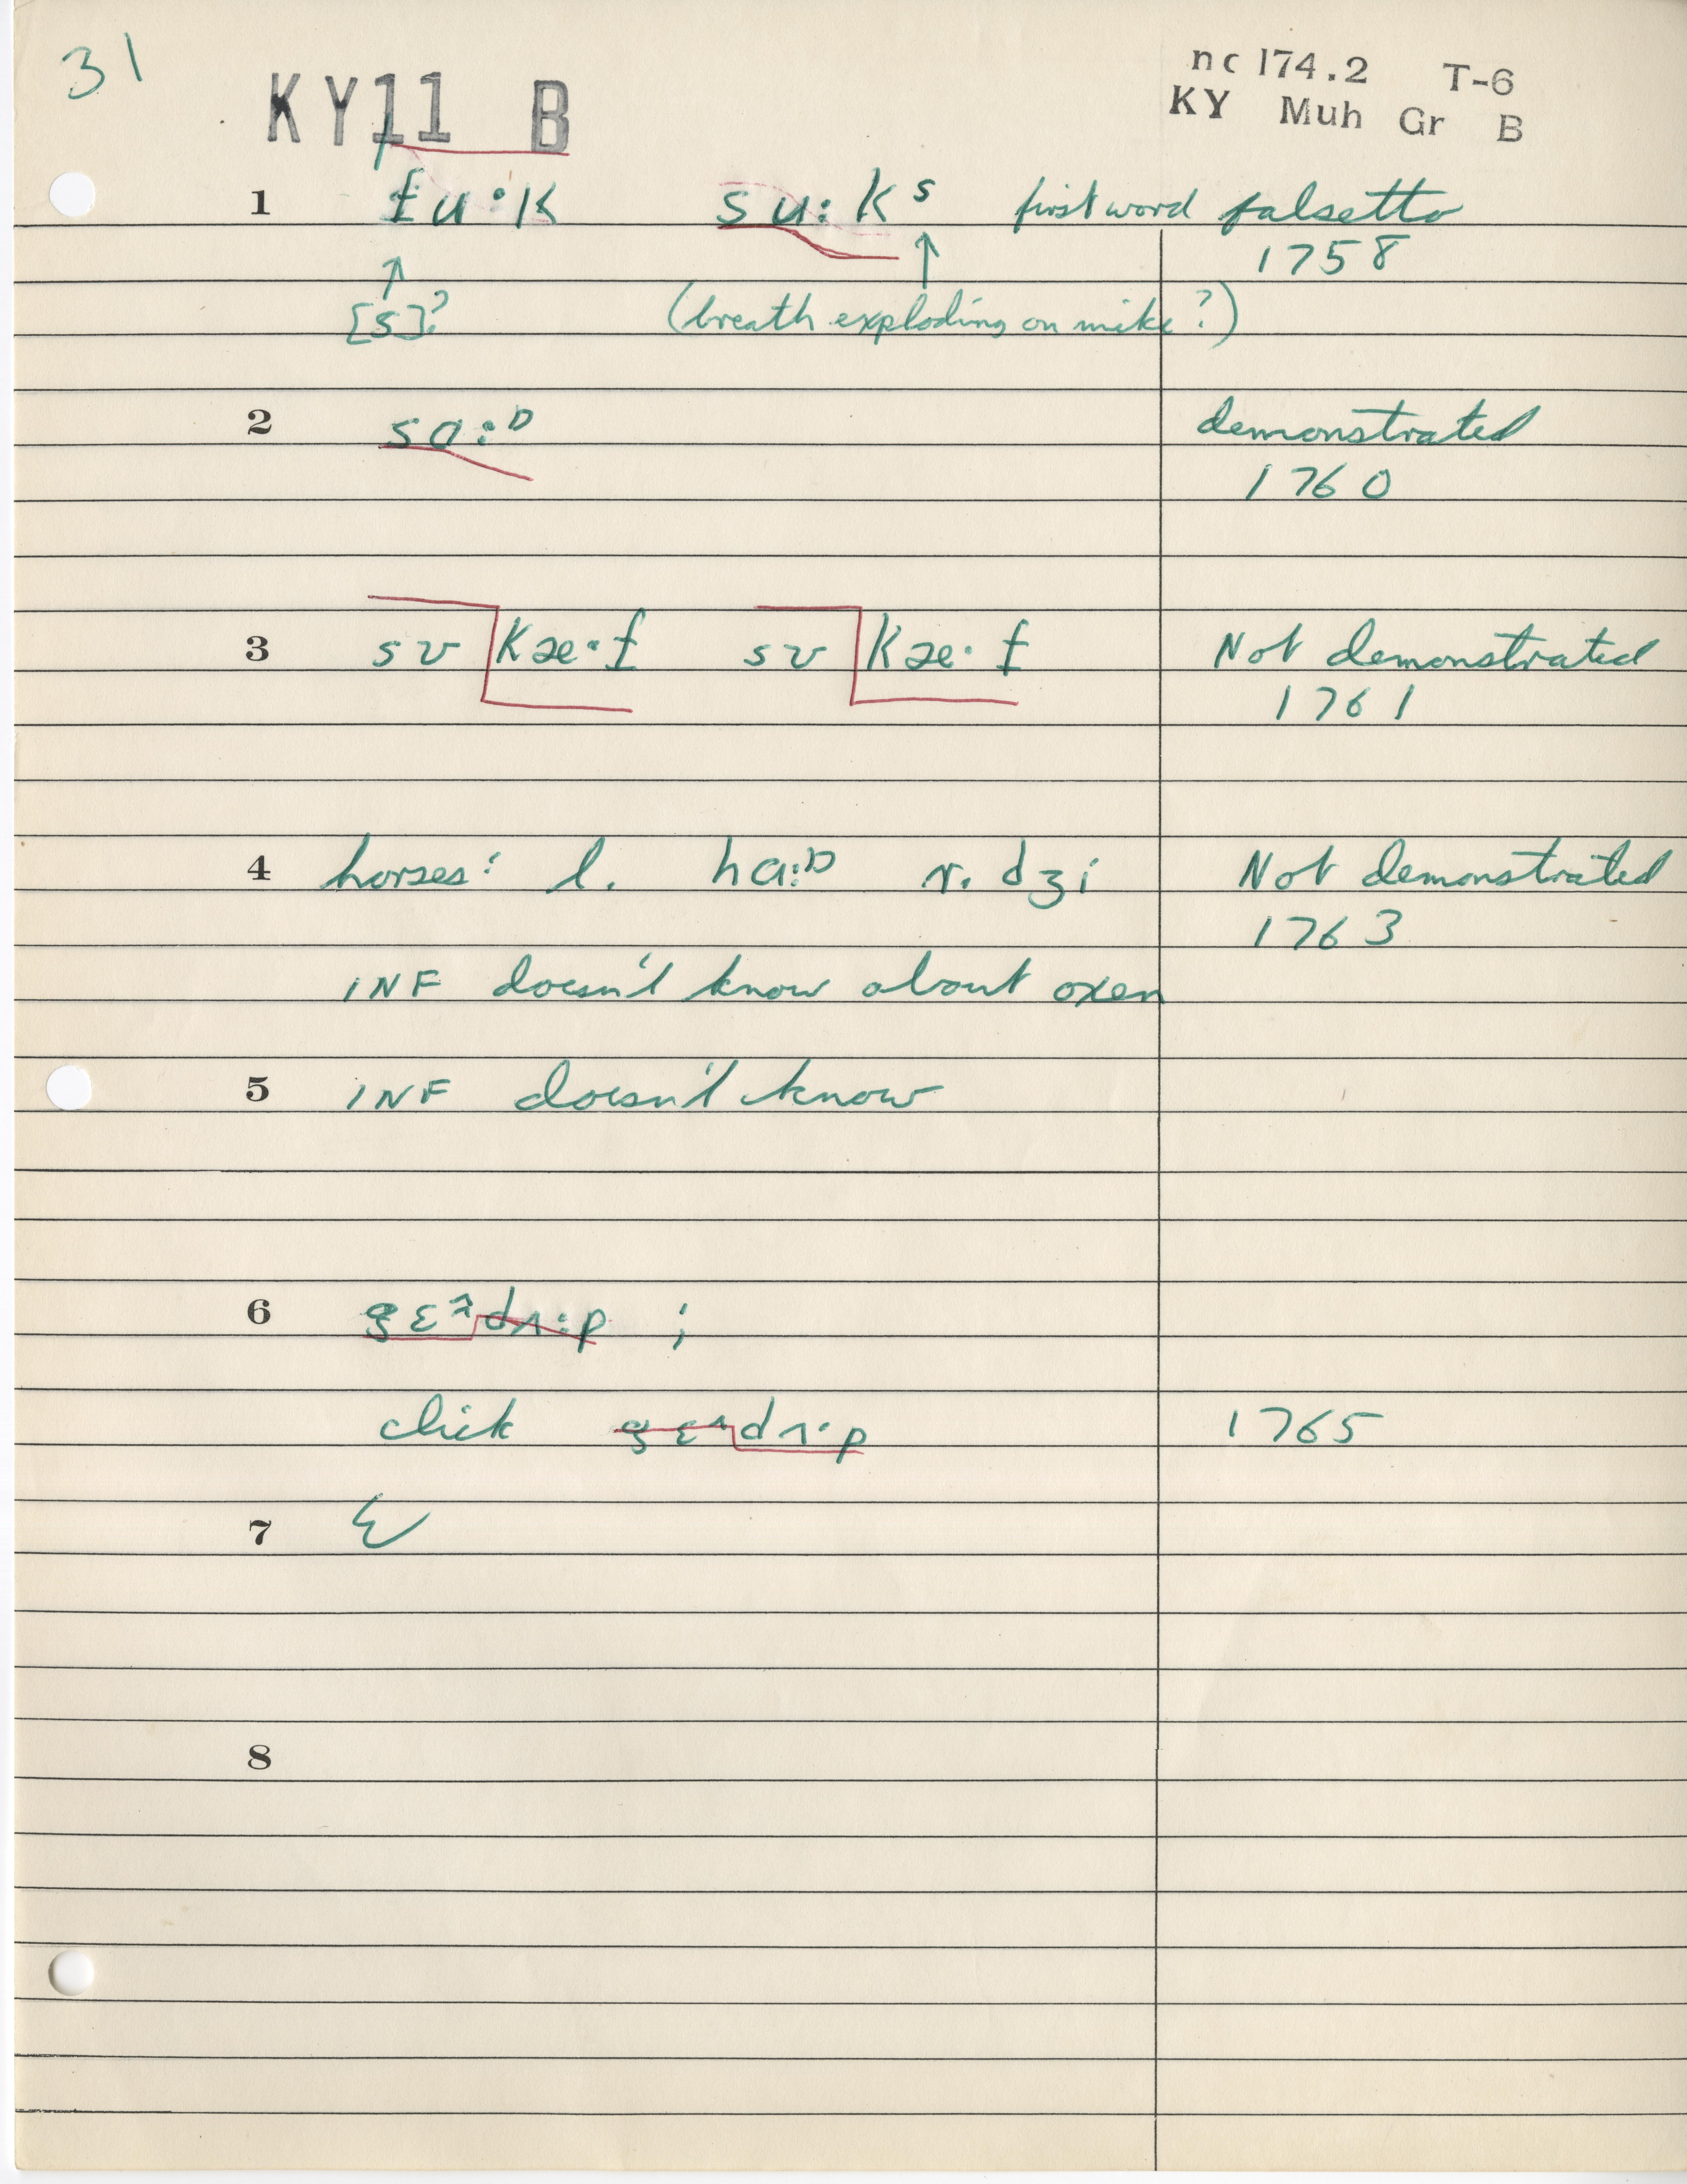 31
KY11 B
nc 174.2 T-6
KY Muh Gr B
1 fu·k su:kˢ first word falsetto
1758
[s]? (breath exploding on mike?)
2 sɑ:ᴰ demonstrated
1760
3 sʊ kæ·f sʊ kæ·f Not demonstrated
1761
4 horses: l. hɑ:ᴰ r. dʒi Not demonstrated
1763
INF doesn't know about oxen
5 INF doesn't know
6 dʌ:p ;
click dʌ·p 1765
7
8